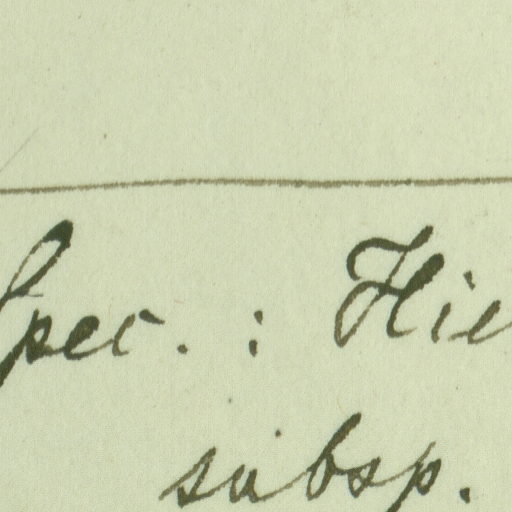 Spec. : Hie
subsp.